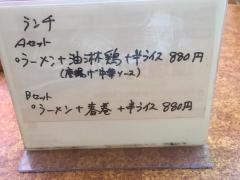 ランチ
Aセット
°ラーメン+油淋鶏+半ライス 880円
(唐揚げ中華ソース)
Bセット
°ラーメン+春巻+半ライス 880円